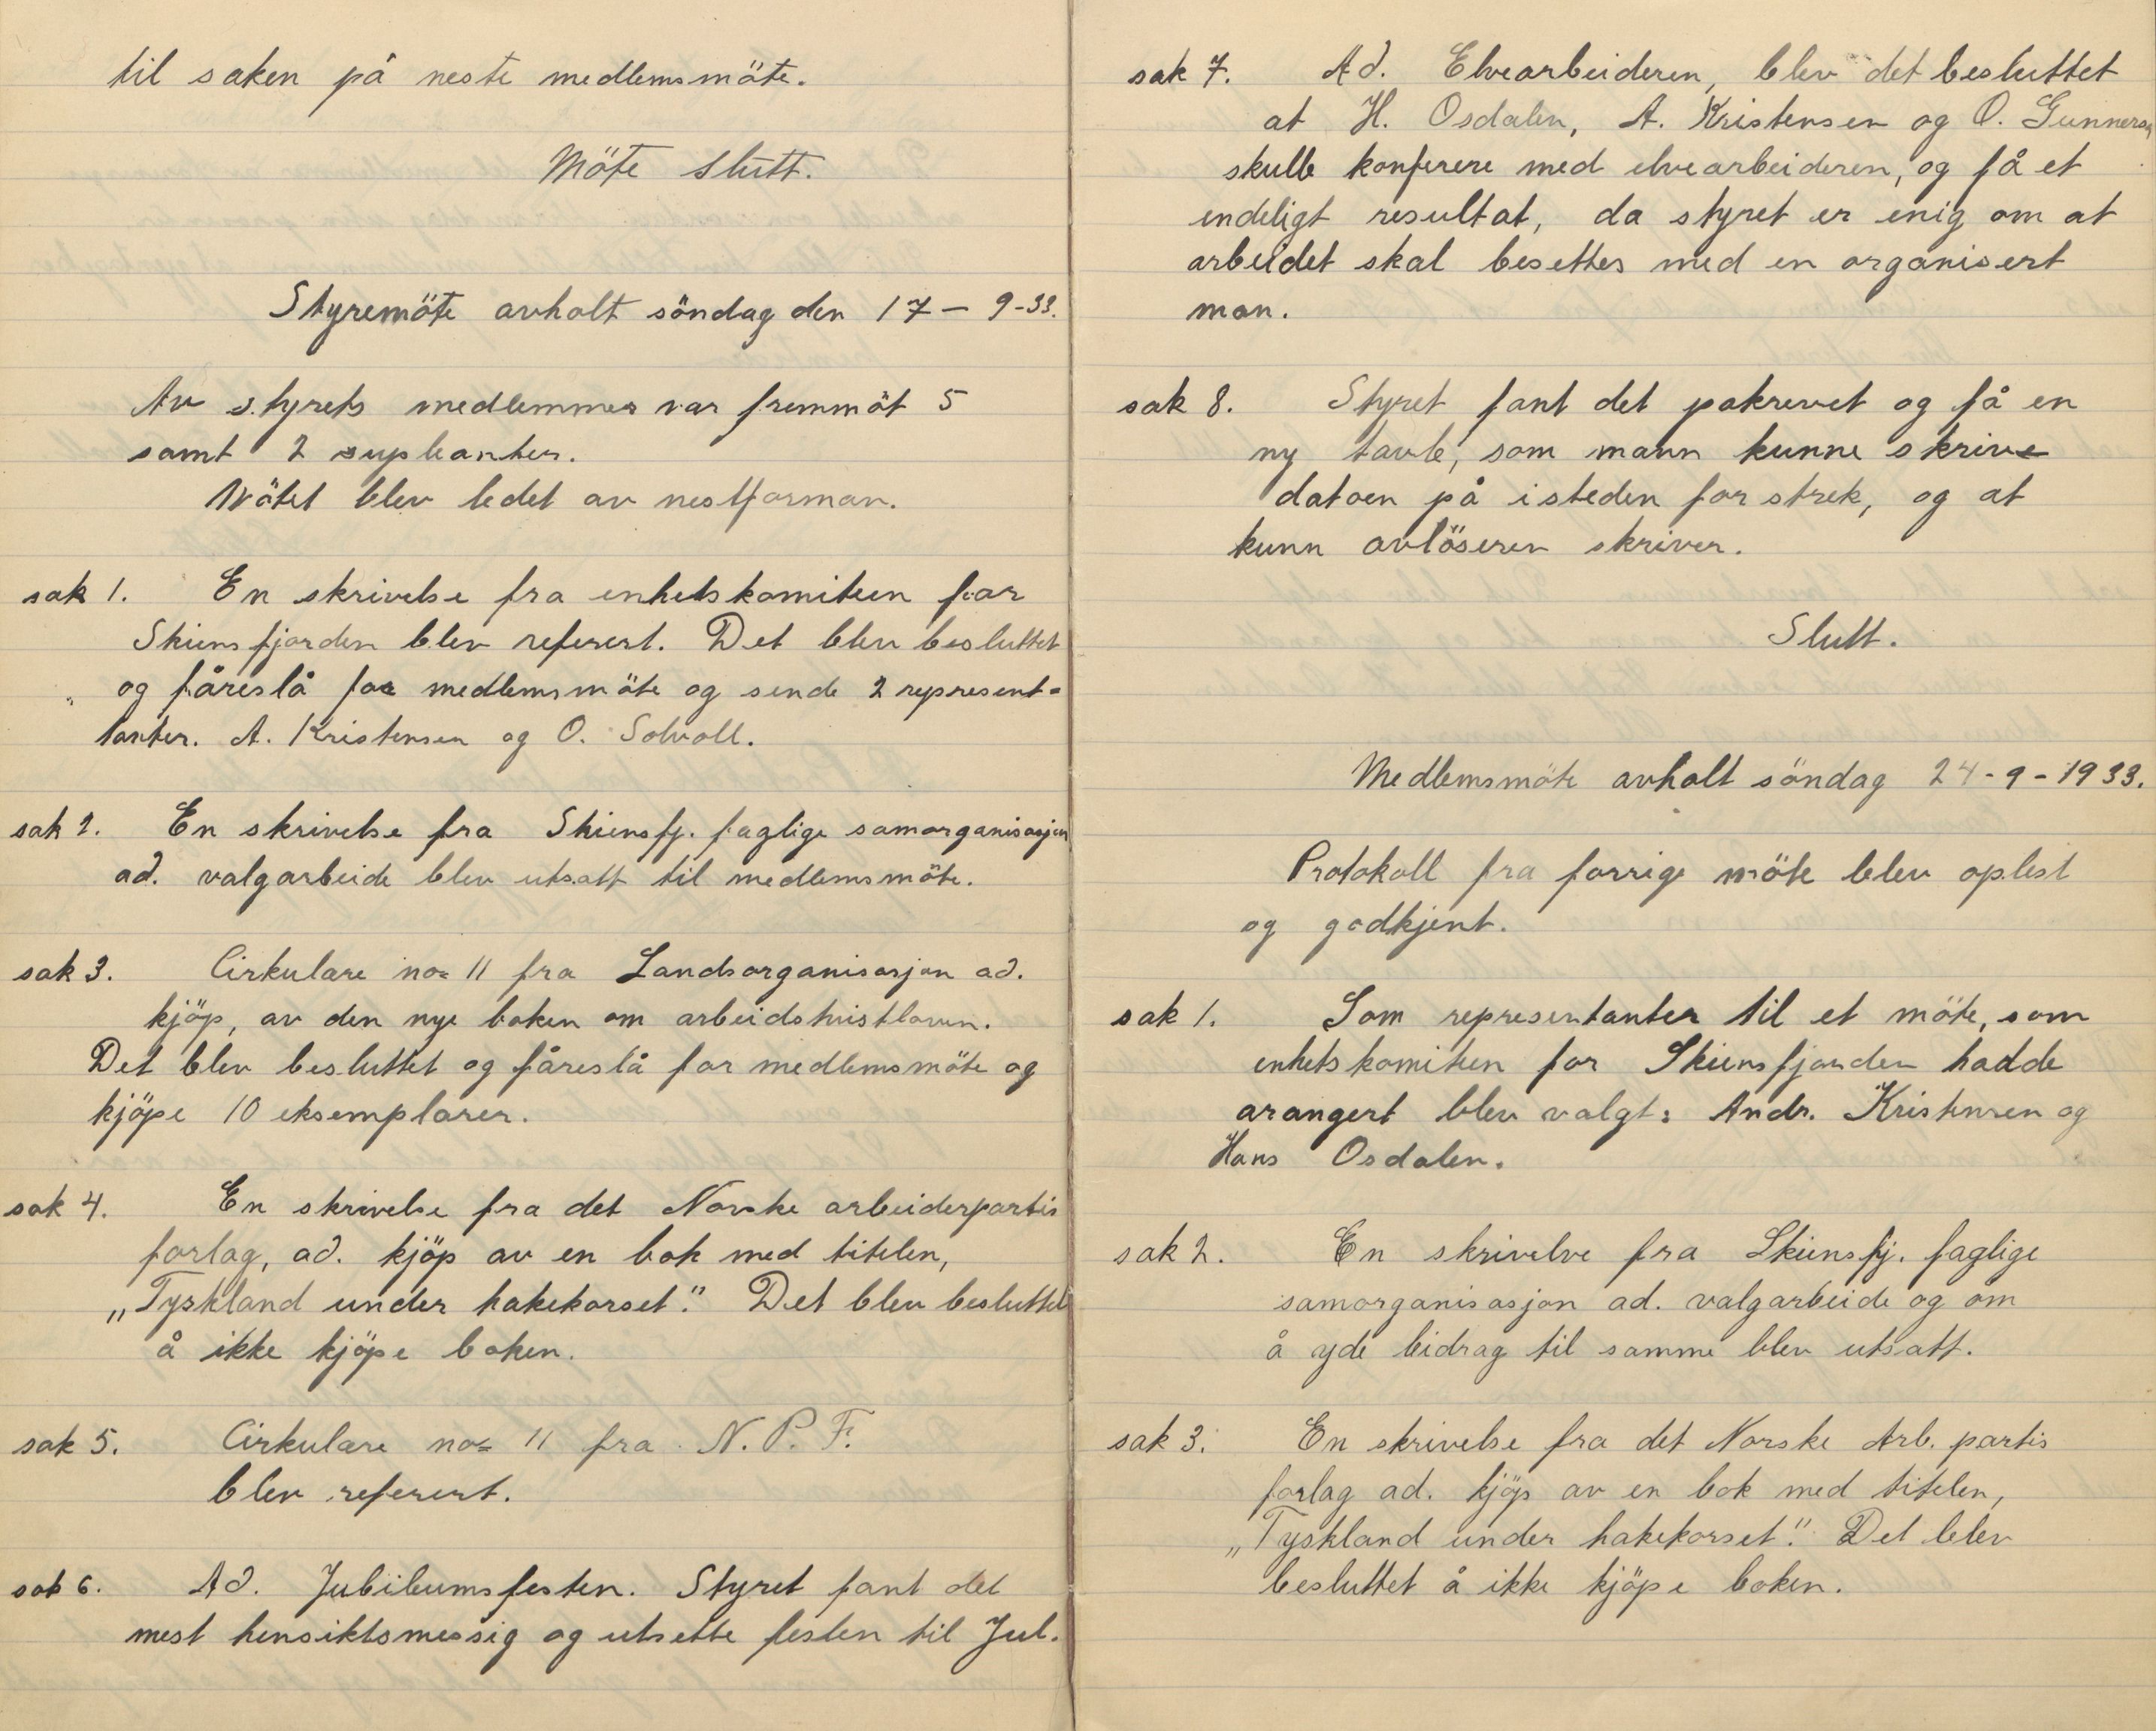 til saken på neste medlemsmöte.
Möte slutt.
Styremöte avholt söndag den 17 - 9-33.
Av styrets medlemmer var fremmöt 5
samt 2 supleanter.
Mötet blev ledet av nestforman.
sak 1. En skrivelse fra enhetskomiteen for
Skiensfjorden blev referert. Det blev besluttet
og föreslå for medlemsmöte og sende 2 represent-
tanter. A. Kristensen og O. Solvoll.
sak 2. En skrivelse fra Skiensfj. faglige samorganisasjon
ad. valgarbeide blev utsatt til medlemsmöte.
sak 3. Cirkulare no= 11 fra Landsorganisasjon ad.
kjöp, av den nye boken om arbeidstvistloven.
Det blev besluttet og föreslå for medlemsmöte og
kjöpe 10 eksemplarer.
sak 4. En skrivelse fra det Norske arbeiderpartis
forlag, ad. kjöp av en bok med titelen,
„Tyskland under hakekorset". Det blev besluttet
å ikke kjöpe boken.
sak 5. Cirkulare no= 11 fra N. P. F.
blev referert.
sak 6. Ad. Jubileumsfesten. Styret fant det
mest hensiktsmessig og utsette festen til Jul.
sak 7. Ad. Elvearbeideren, blev det besluttet
at H. Osdalen, A. Kristensen og O. Gunnersen
skulle konferere med elvearbeideren, og få et
endeligt resultat, da styret er enig om at
arbeidet skal besettes med en organisert
man.
sak 8. Styret fant det pakrevet og få en
ny tavle, som mann kunne skrive
datoen på isteden for strek, og at
kunn avlöseren skriver.
Slutt.
Medlemsmöte avholt söndag 24-9-1933.
Protokoll fra forrige möte blev oplest
og godkjent.
sak 1. Som representanter til et möte, som
enhetskomiteen for Skiensfjorden hadde
arangert blev valgt: Andr. Kristensen og
Hans Osdalen.
sak 2. En skrivelve fra Skiensfj. faglige
samorganisasjon ad. valgarbeide og om
å yde bidrag til samme blev utsatt.
sak 3. En skrivelse fra det Norske Arb. partis
forlag ad. kjöp av en bok med titelen,
„Tyskland under hakekorset". Det blev
besluttet å ikke kjöpe boken.